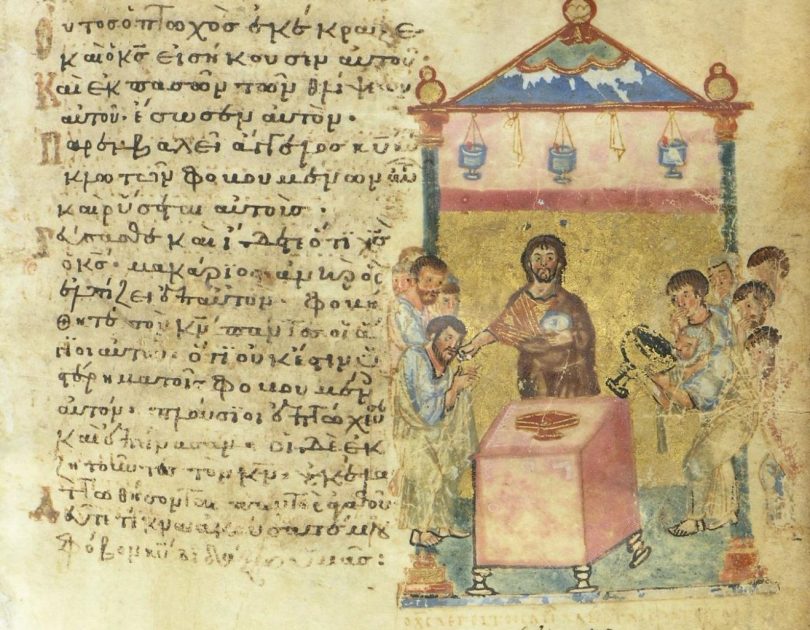 Οὗτος ὁ πτωχὸς ἐκέκραξε
καὶ ὁ κ̅ς̅ εἰσήκουσεν αὐτοῦ·
Καὶ ἐκ πασῶν τῶν θλίψεων
αὐτοῦ· ἔσωσεν αὐτόν·
Παρεμβαλεῖ ἄγγελος κ̅υ̅
κύκλῳ τῶν φοβουμένων αὐτὸν
καὶ ῥύσεται αὐτούς·
Γεύσασθε καὶ ἴδετε ὅτι χ̅ς̅
ὁ κ̅ς̅· μακάριος ἀνὴρ ὃς
ἐλπίζει ἐπ' αὐτόν· Φοβή
θητε τὸν κ̅ν̅ πάντες οἱ ἅ
γιοι αὐτοῦ· ὅτι οὐκ ἔστιν ὑ
στέρημα τοῖς φοβουμένοις
αὐτόν· πλούσιοι ἐπτώχευσαν
καὶ ἐπείνασαν· οἱ δὲ ἐκ
ζητοῦντες τὸν κ̅ν̅· οὐκ ἐλα
ττωθήσονται παντὸς ἀγαθοῦ
Δεῦτε τέκνα ἀκούσατέ μου
φόβον κ̅υ̅ διδάξω ὑμᾶς: